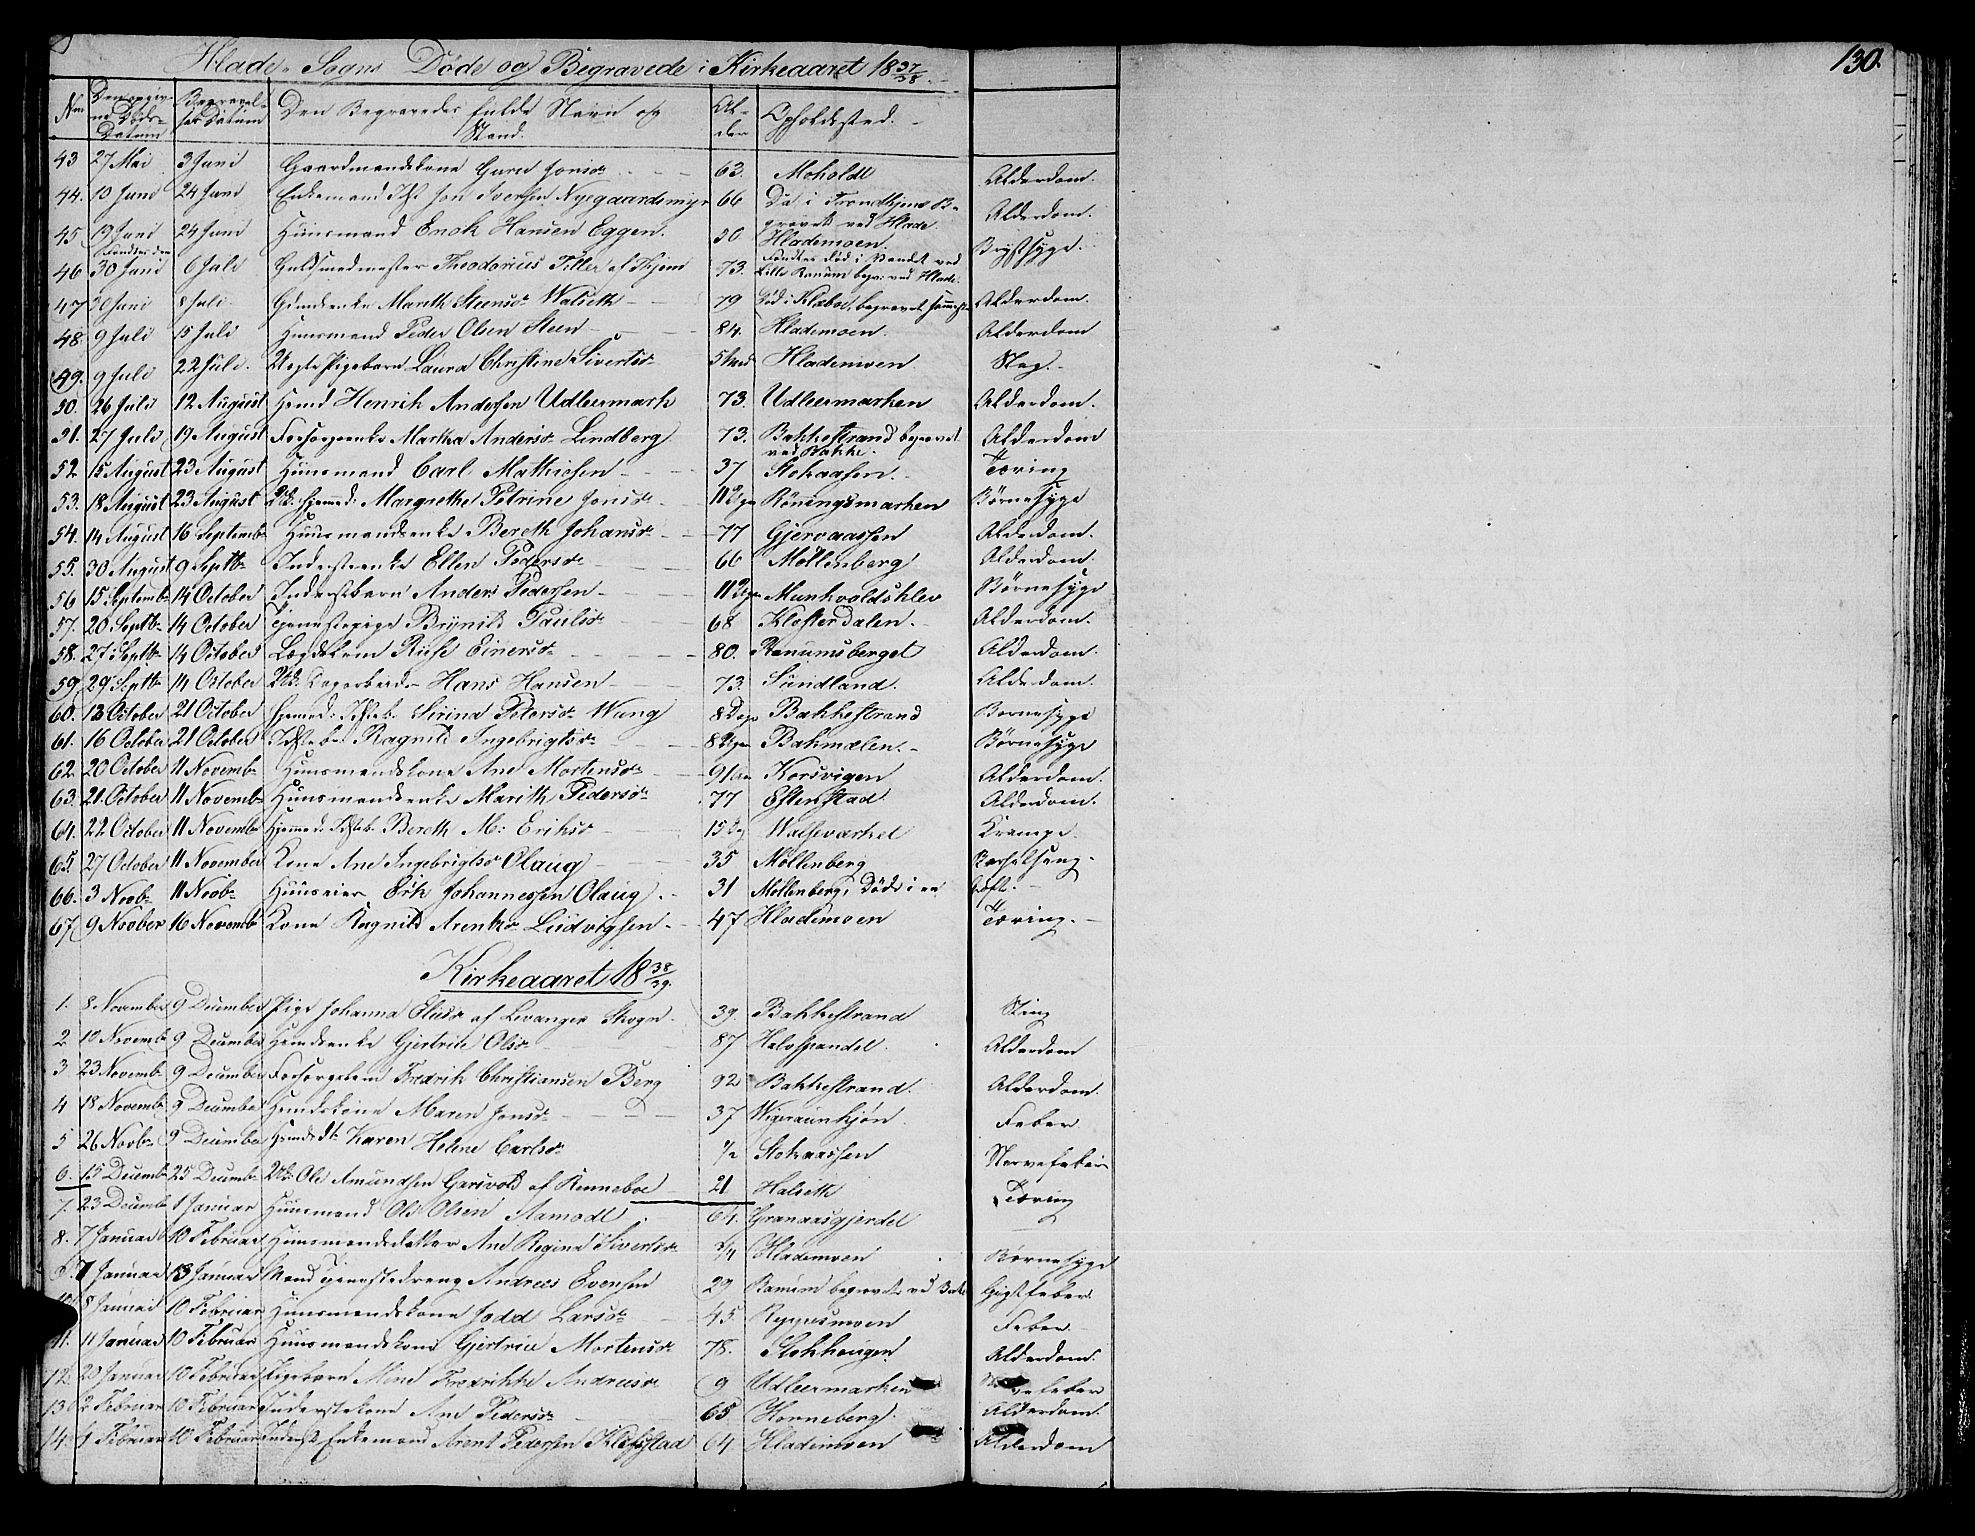 130.
Hlade-Sogns Døde og Begravede i Kirkeaaret 18 37/38.
Nm Den angivne Døds-Datum Begravelses Datum Den Begravedes fulde Navn og Stand. Alder Opholdssted.
43 27 Mai 3 Juni Gaardmandskone Guru Jonsdr 63. Moholdt Alderdom.
44. 10 Juni 24 Juni Enkemand Jon Iversen Nygaardsmyr 66 Død i Trondhjem Begravet ved Hlade Alderdom.
45 19 Juni 24 Juni Huusmand Enok Hansen Eggen. 50. Hlademoen. Brystsyge.
46 Funden den 30 Juni 6 Juli Guldsmedmester Theodorius Tiller af Thjem 73. Funden død i Vandet ved Lille Ranum begr. ved Hlade.
47 30 Juni 8 Juli Marith Steensdr Walseth 79 Død i Klæboe, begravet Alderdom.
48 9 Juli 15 Juli Huusmand Peder Olsen Steen 84. Hlademoen. Alderdom
49. 9 Juli 22 Juli. Uegte Pigebarn Laura Christine Sivertsdr Hlademoen. Slag.
50. 26 Juli 12 August Henrik Andersen Udleermark 73. Udleermarken Alderdom.
51. 27 Juli 19 August Martha Andersdr Lindberg 73. Bakkestrand begravet ved Bakke. Alderdom
52. 15 August 23 August Huusmand Carl Mathiesen 37 Stokaasen. Tæring
53. 18 August 23 August Margrethe Petrine Jonsdr 11 Dge Röningsmarken Børnesyge
54. 14 August 16 Septembr Huusmandsenke Bereth Johansdr 77 Gjervaassen Alderdom.
55. 30 August 9 Septbr Ellen Pedersdr 66 Möllenberg Alderdom.
56 15 Septembr 14 October Anders Pedersen 11 Dge Munkvoldsklev Børnesyge
57. 20 Septbr 14 October Tjenestepige Brynild Paulsdr 68 Klosterdalen. Alderdom.
58. 27 Septbr 14 October Lægdslem Einersdr 80. Ranumsberget Alderdom.
59. 29 Septbr 14 October Hans Hansen 73. Sundland. Alderdom.
60. 13 October 21 October Sirina Petersdr Wung 8 Dage Bakkestrand Børnesyge
61. 16 October 21 October Ragnild Ingebrigtsdr 8 Dage Bakmælen. Børnesyge
62. 20 October 11 Novembr Huusmandskone Ane Mortensdr Korsvigen Alderdom.
63. 21. October 11 Novembr Huusmandsenke Marith Pedersdr 77 Estenstad Alderdom.
64. 22 October 11 Novembr Bereth M: Eriksdr 15 Dg Walseværket Krampe.
65. 27 October 11 November Kone Ane Ingebrigtsdr Olaug 35 Möllenberg Barselseng.
66. 3 Novbr 11 Novbr Huuseier Erik Johannessen Olaug. 31 Möllenberg; Døde i en Hast.
67. 9 November 16 Novembr Kone Ragnild Arentsdr Ludvigsen 47 Hlademoen Tæring.
Kirkeaaret 18 38/39.
1. 8. November 9 December Pige Johanna Olusdr af Levanger Skogn 39. Bakkestrand Sting
2. 10 Novembr 9 December Gjertrue Olsdr 87 Halvspandet. Alderdom
3 23 Novembr 9 December Forsorgslem Fredrik Christiansen Berg 92 Bakkestrand. Alderdom.
4 18 Novembr 9 December Maren Jonsdr 37 Feber
5 26 Novbr 9 December Karen Helene Carlsdr 1/2 Stokaassen Nervefeber
6. 15 Decembr 25 Decembr Ole Amundsen Garsvold af Renneboe 21 Halseth Tæring
7. 23 Decembr 1 Januar Huusmand Ole Olsen Aamodt 64. Granaasgjerdet
8. 7 Januar 10 Februar Huusmandsdatter Ane Regina Sivertsdr 3/4 Hlademoen Børnesyge
7 Januar 13 Januar Tjenestedreng Andreas Evensen 29 Ranum begravet ved Bakke Gigtfeber.
8 Januar 10 Februar Huusmandskone Jodd Larsdr 45. Reppesmoen Feber
11. 11 Januar 10 Februar Huusmandskone Gjertrue Mortensdr 78. Stokhaugen. Alderdom.
12. 20 Januar 10 Februar Pigebarn Mine Fredrikke Andreasdr 9 Udleermarken Nervefeber
13. 2 Februar 10 Februar Inderstkone Ane Pedersdr 65 Horneberg. Alderdom.
14. Februar 10 Februar Inderst Enkemand Arent Pedersen Klefstad 64 Hlademoen Alderdom